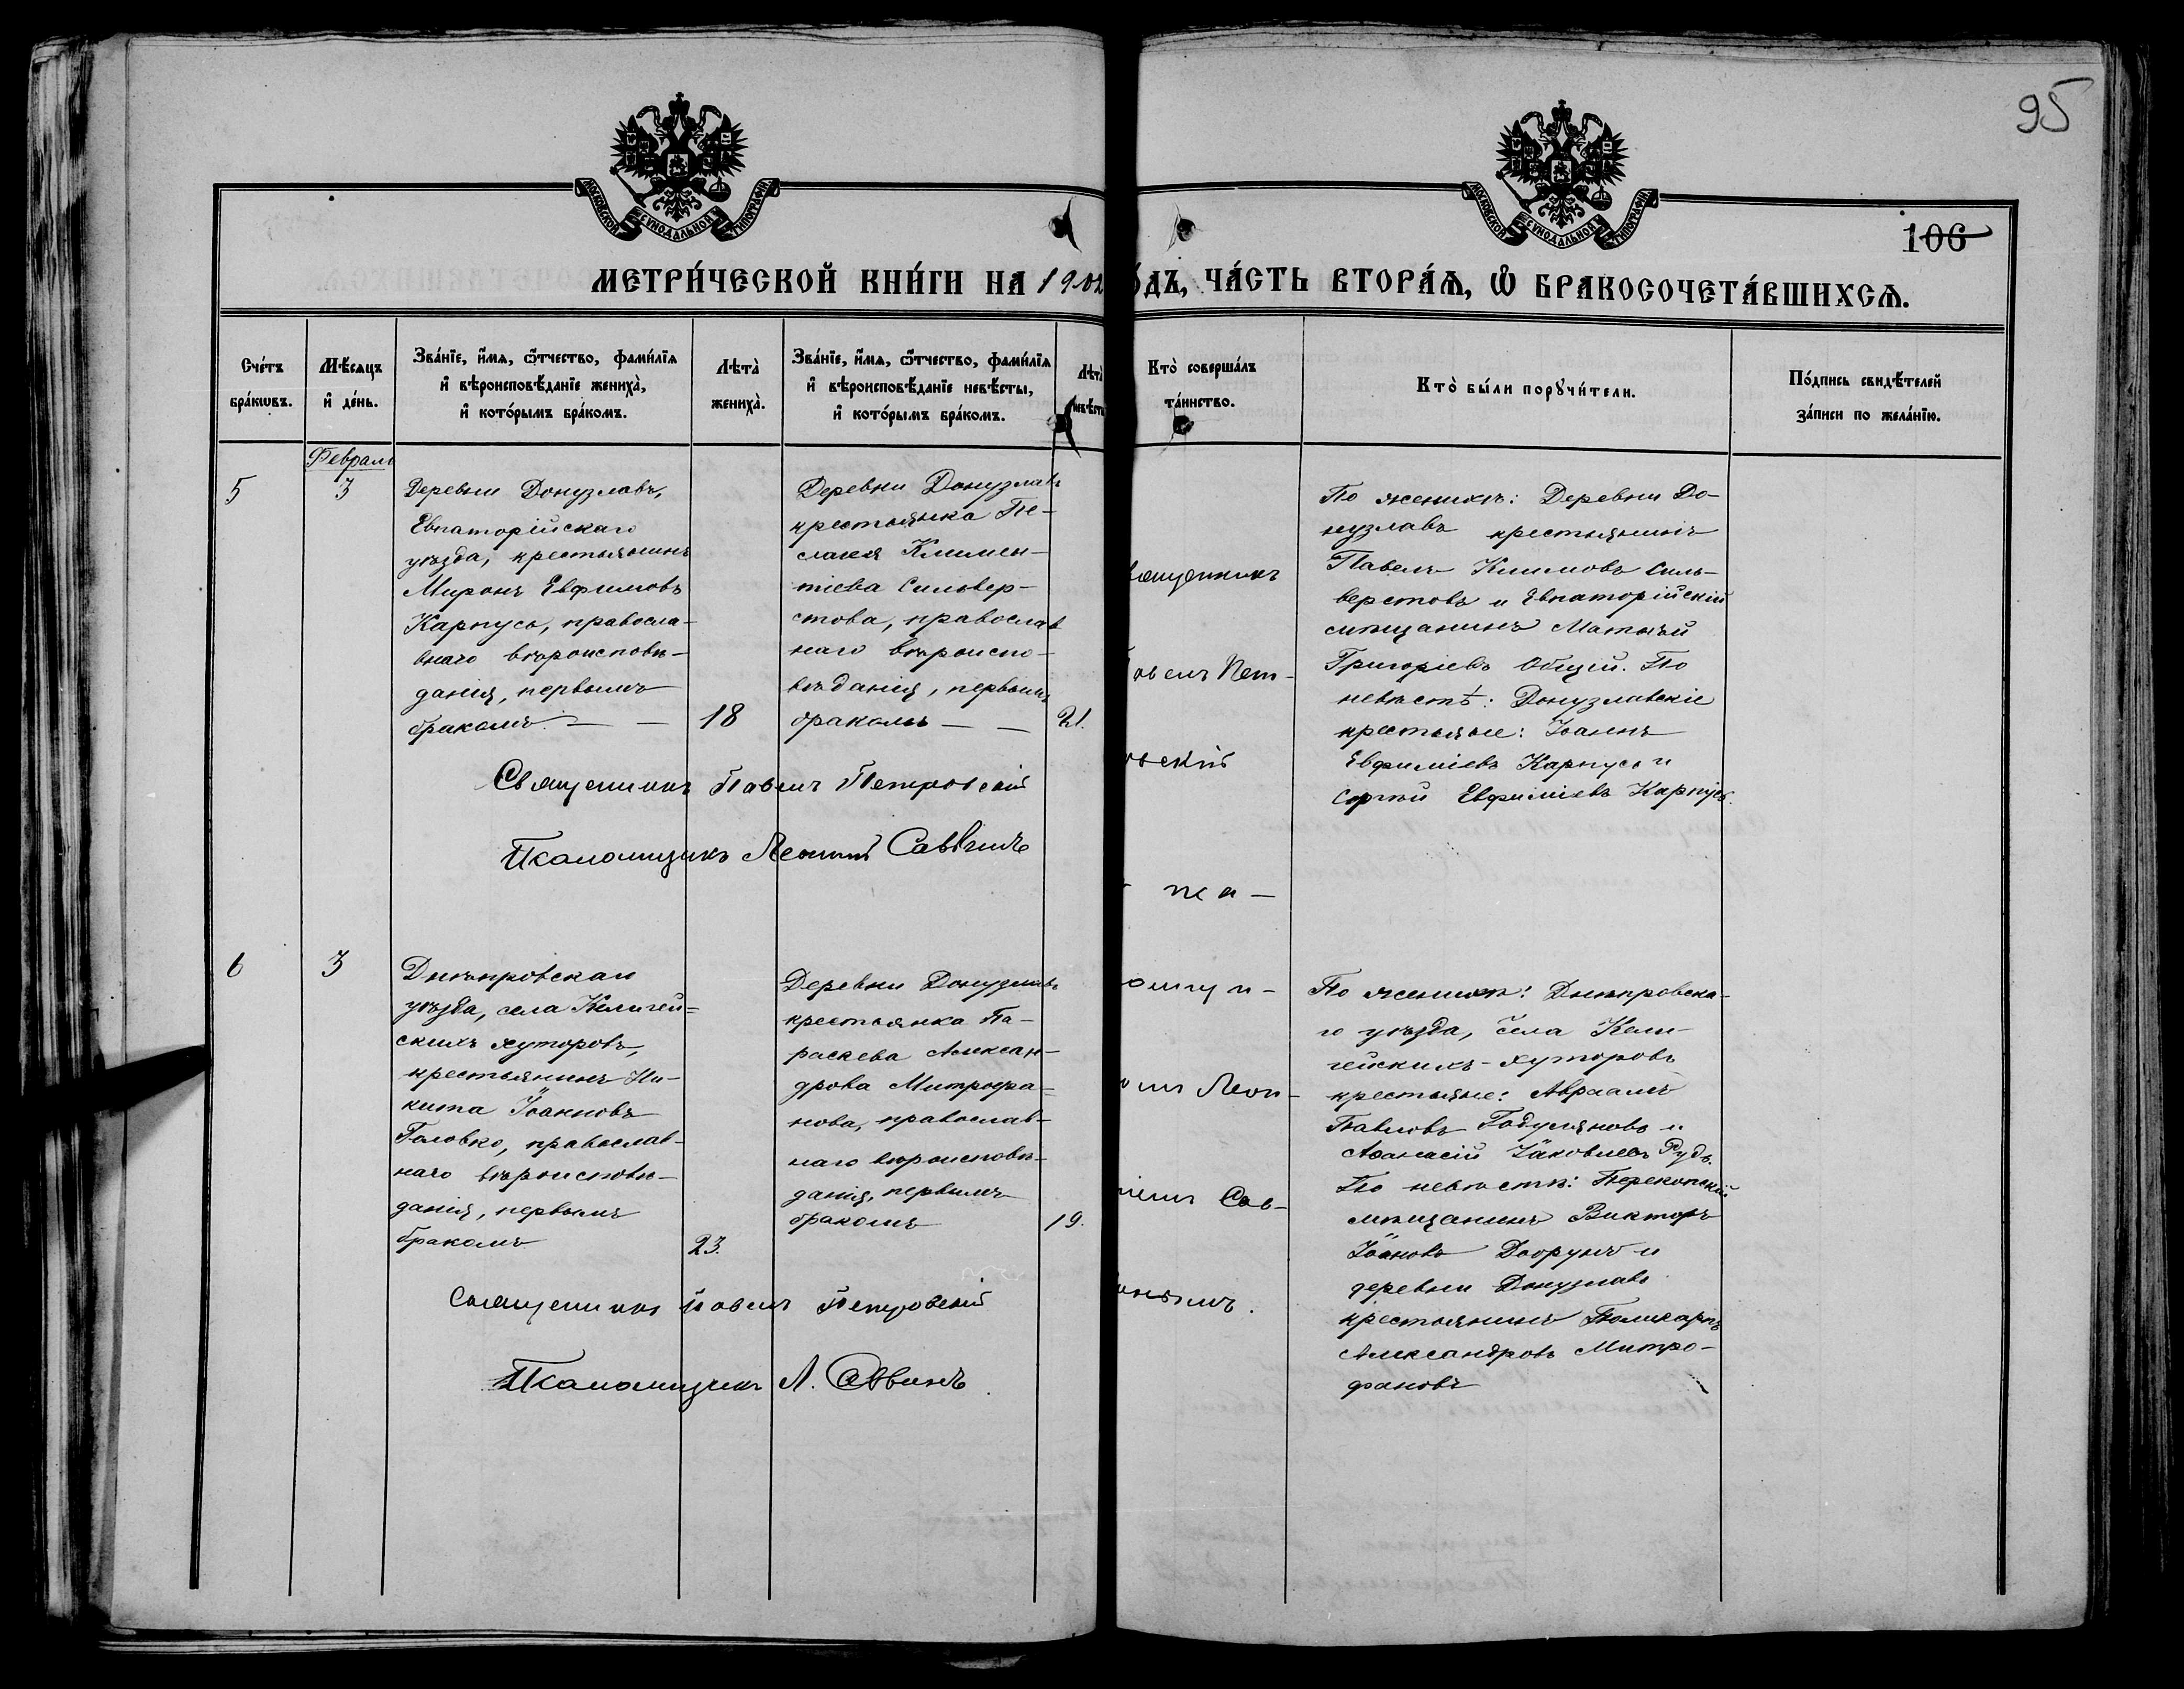 95
106
МОСКОВСКОЙ СѴНОДАЛЬНОЙ ТИПОГРАФІИ
МОСКОВСКОЙ СѴНОДАЛЬНОЙ ТИПОГРАФІИ
МЕТРИ́ЧЕСКОЙ КНИ́ГИ НА 1902
О́ДЪ, ЧА́СТЬ ВТОРА́Ѧ, Ѡ҆ БРАКОСОЧЕТА́ВШИХСѦ.
Сче́тъ
бра́кѡвъ.
Мѣ́сѧцъ
и҆ де́нь.
Зва́нїе, и҆́мѧ, ѻ҆́тчество, фами́лїѧ
и҆ вѣроисповѣ́данїе жениха̀,
и҆ кото́рымъ бра́комъ.
Лѣта̀
жениха̀.
Зва́нїе, и҆́мѧ, ѻ҆́тчество, фами́лїѧ
и҆ вѣроисповѣ́данїе невѣ́сты,
и҆ кото́рымъ бра́комъ.
Лѣта̀
невѣ́сты
Кто̀ соверша́лъ
та́инство.
Кто̀ бы́ли порꙋчи́тели.
По́дпись свидѣ́телей
за́писи по жела́нїю.
Февраль
5
3
Деревни Донузлавъ,
Евпаторійскаго
уѣзда, крестьянинъ
Миронъ Евфимовъ
Карпусь, правосла-
внаго вѣроисповѣ-
данія, первымъ
бракомъ — —
18
Деревни Донузлавъ
крестьянка Пе-
лагея Климен-
тіева Сильвер-
стова, православ
наго вѣроиспо-
вѣданія, первымъ
бракомъ — —
21.
вященникъ
авелъ Пет-
овскій
По женихѣ: Деревни До-
нузлавъ крестьянинъ
Павелъ Климовъ Силь-
верстовъ и Евпаторійскій
мѣщанинъ Матвѣй
Григоріевъ Общій. По
невѣстѣ: Донузлавскіе
крестьяне: Іоаннъ
Евфиміевъ Карпусь и
Сергѣй Евфиміевъ Карпусь.
Священникъ Павелъ Петровскій
Псаломщикъ Леонтій Саввинъ
6
3
Днѣпровскаго
уѣзда, села Келегей-
скихъ хуторовъ,
крестьянинъ Ни-
кита Іоанновъ
Головко, православ-
наго вѣроисповѣ-
данія, первымъ
бракомъ
23.
Деревни Донузлавъ
крестьянка Па-
раскева Алексан-
дрова Митрофа-
нова, православ-
наго вѣроисповѣ-
данія, первымъ
бракомъ
19.
По женихѣ: Днѣпровска-
го уѣзда, села Келе-
гейскихъ-хуторовъ
крестьяне: Авраамъ
Павловъ и
Аѳанасій Іаковлевъ Рудь.
По невѣстѣ: Перекопскій
мѣщанинъ Викторъ
Іоановъ и
деревни Донузлавъ
крестьянинъ Поликарпъ
Александровъ Митро-
фановъ
Священникъ Павелъ Петровскій
Псаломщикъ Л. Саввинъ